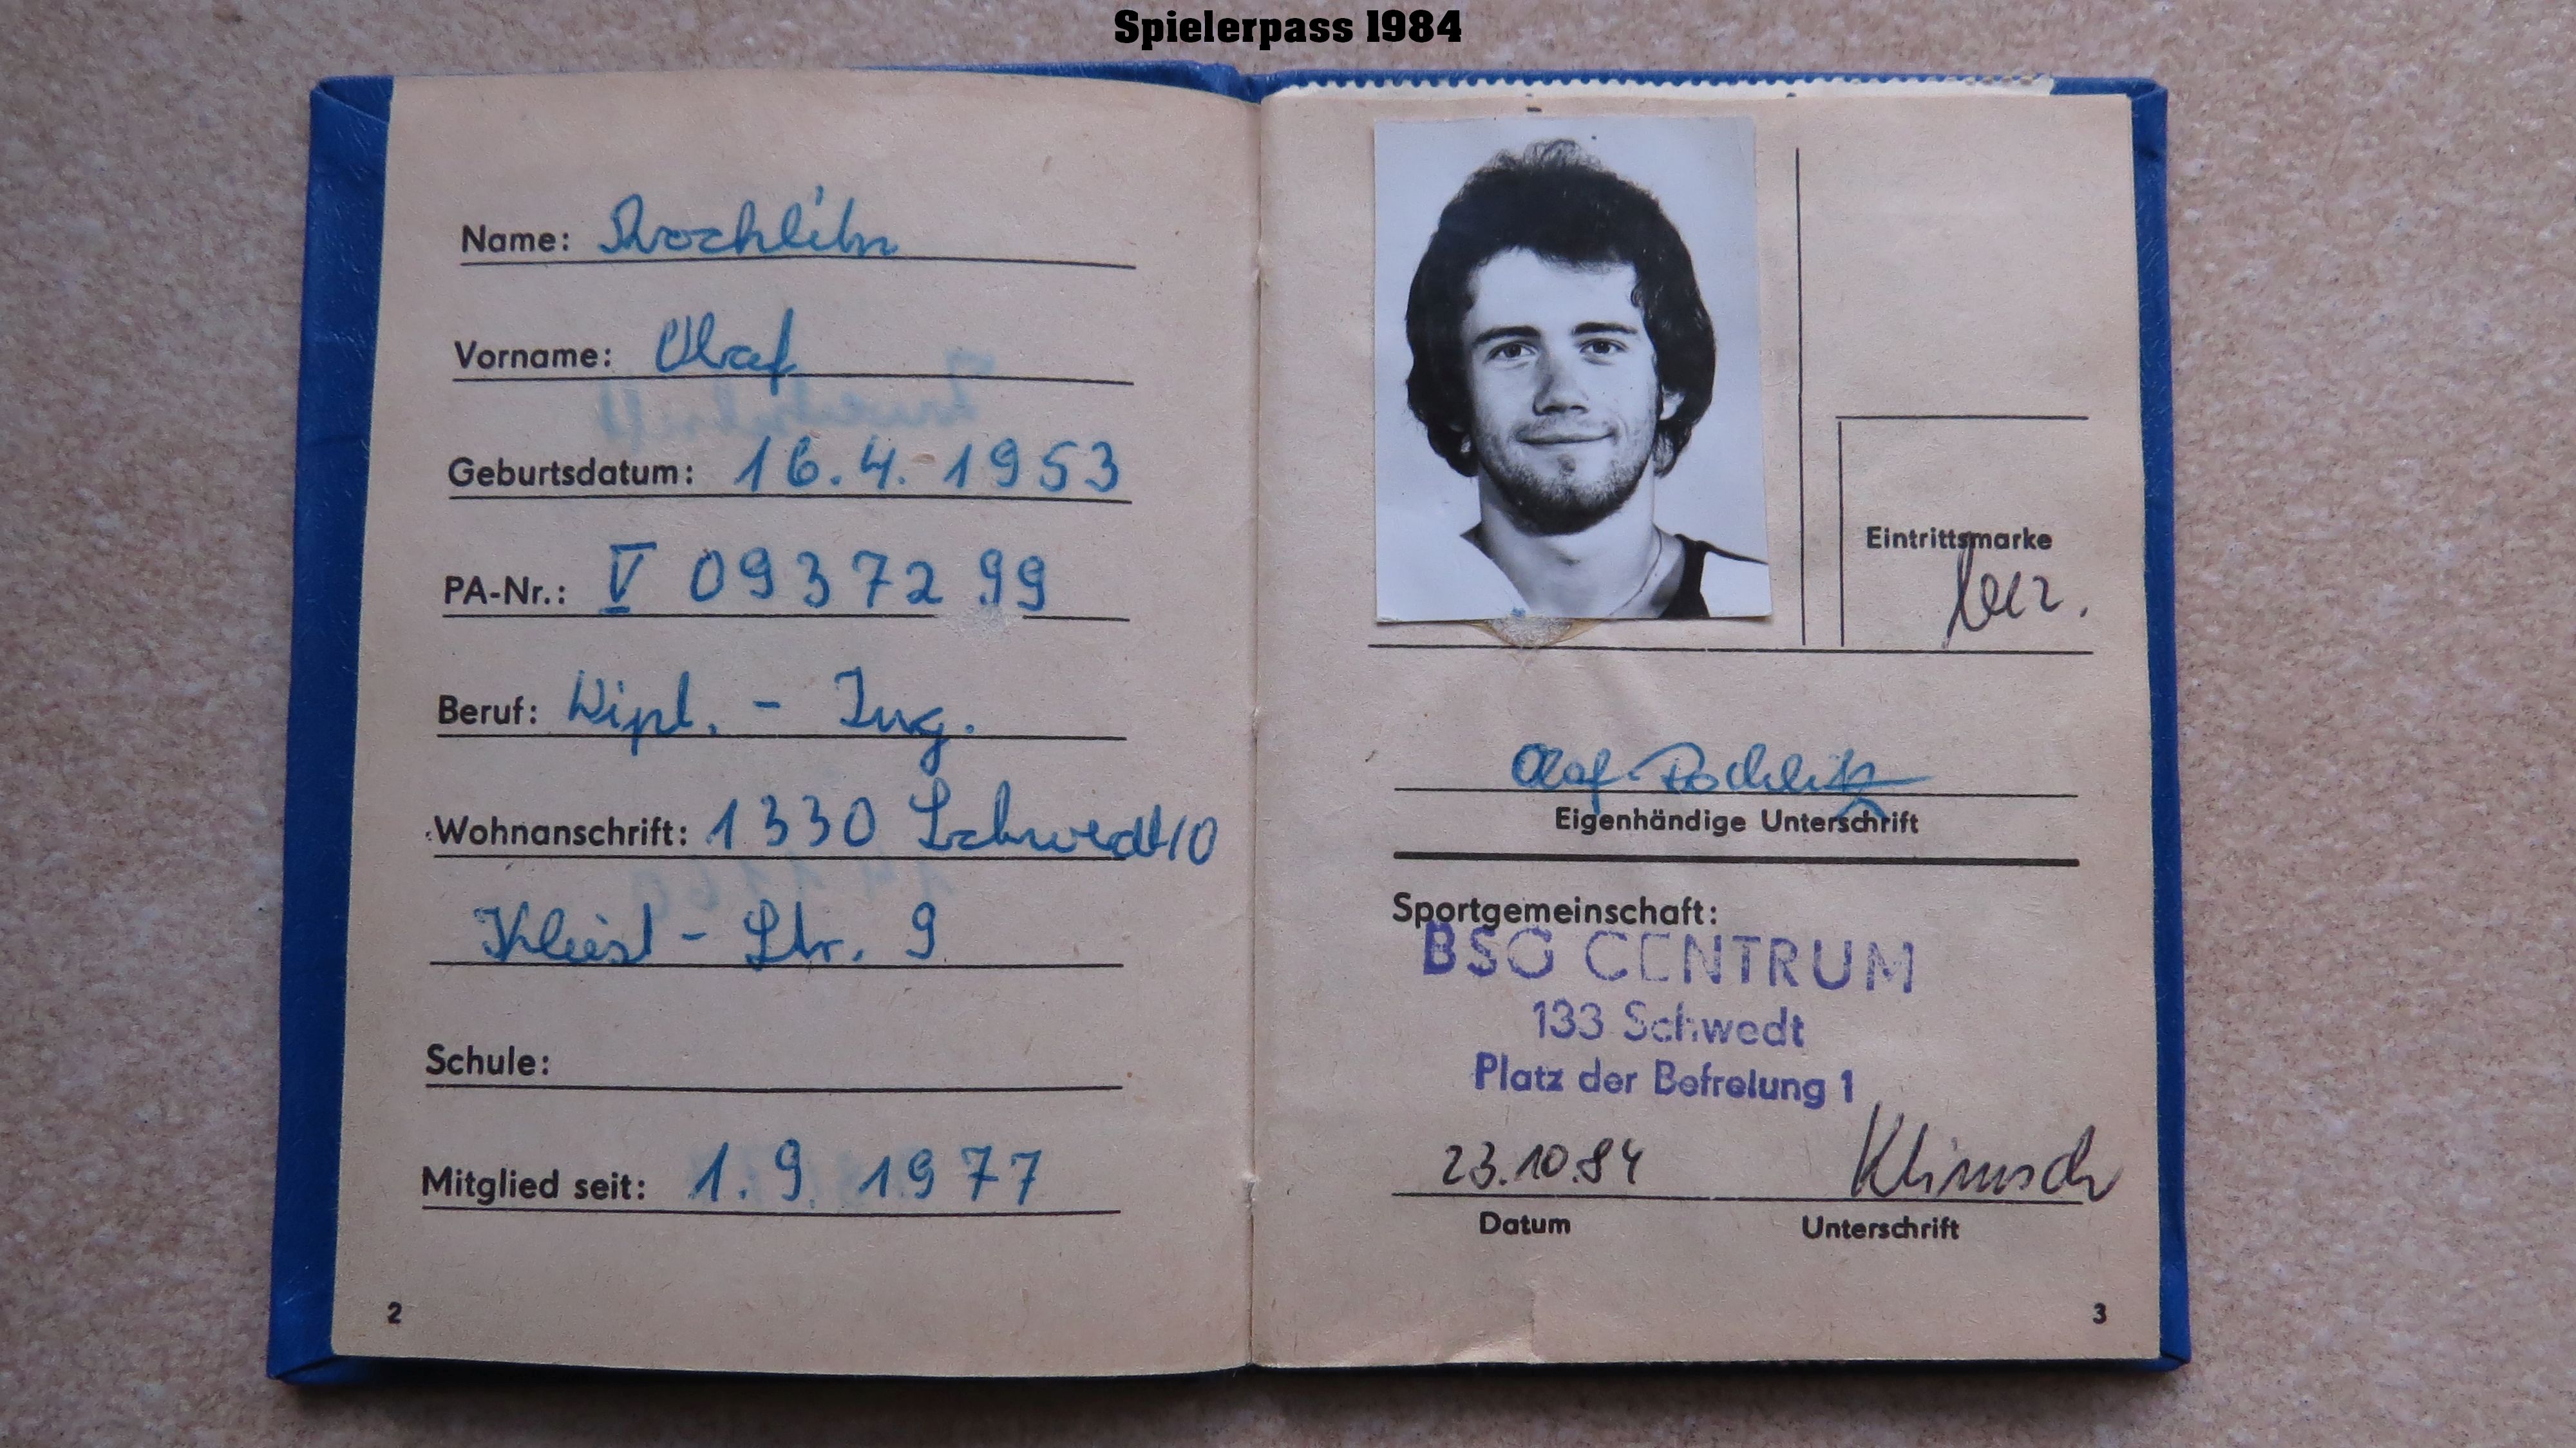 Spielerpass 1984
Name: Rochlitz
Vorname: Olaf
Geburtsdatum: 16.4.1953
PA-Nr.: V 0937299
Beruf: Dipl. - Ing.
Wohnanschrift: 1330 Schwedt/O
Kleist - Str. 9
Schule:
Mitglied seit: 1.9.1977
2
Eintrittsmarke
Olaf Rochlitz
Eigenhändige Unterschrift
Sportgemeinschaft:
BSG CENTRUM
133 Schwedt
Platz der Befreiung 1
23.10.84 Klimsch
Datum Unterschrift
3